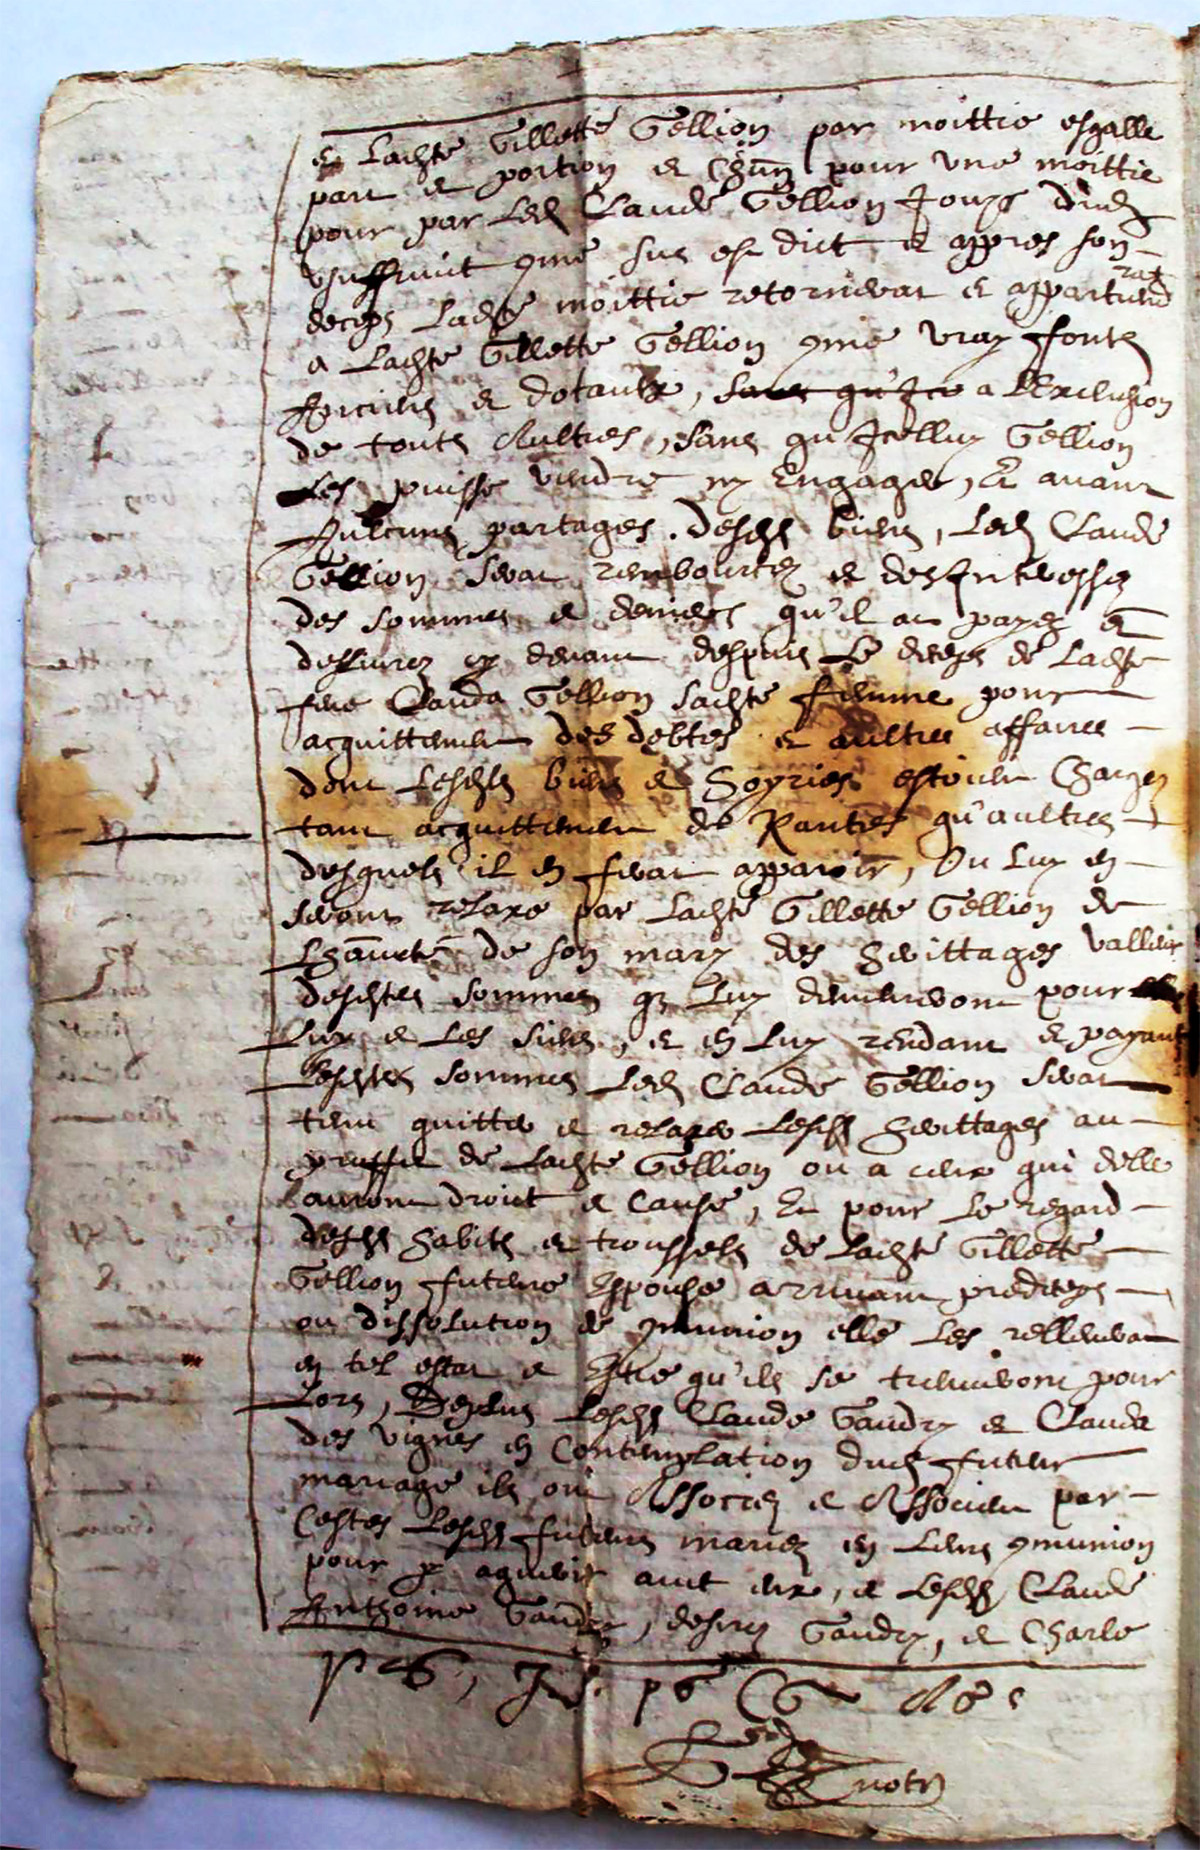 et Ladte Gillette Gellion par moittie esgalle
part et portion et Chun pour une moittie
pour par Led Claude Gellion Jouyr dud
usuffruict cme sus est dict et appres son
deceps Ladte moittie retornerat et appartiendrat
a Ladte Gillette Gellion cme vray fonds
Anciens et dotaulx, sans qu'Ice a l'Exclusion
de touts Aultres, sans qu'Icelluy Gellion
Les puisse vendre ny Engager, Et avant
Aulcuns partages desds biens, Led Claude
Gellion serat rembourcez et desInteressez
des sommes et deniers qu'il at payez et
dellivrez cy devant despuis Le deceps de Ladte
feue Clauda Gellion sadte femme pour
acquittement des debtes et aultres affaires
dont Lesdts biens de Soyries estoient Chargez
tant acquittement de Rantes qu'aultres
desquels il en ferat apparoir, Ou luy en
seront relaxe par Ladte Gillette Gellion de
L'hauctе de son mary des herittages valleur
desdtes sommes qz Luy demeureront pour
Luy et Les siens, et en Luy rendant et payant
Lesdtes sommes Led Claude Gellion serat
tenu quitter et relaxer Lesds herittages au
prouffit de Ladte Gellion ou a ceux qui d'elle
auront droict et Cause, Et pour Le regard
desds habits et troussels de Ladte Gillette
Gellion future Espouse arrivant prediceps
ou dissolution de cmunion elle Les relleverat
en tel estat et Estre qu'ils se treuveront pour
Lors, Deplus Lesds Claude Gaudry et Clauda
des vignes en Contemplation dud futeur
mariage ils ont Associez et Associent par
Cestes Lesds futeurs mariez en Leurs cmunion
pour y acquerir avec eux, et Lesds Claude
Anthoine Gaudry, Gaudry, et Charle
notr